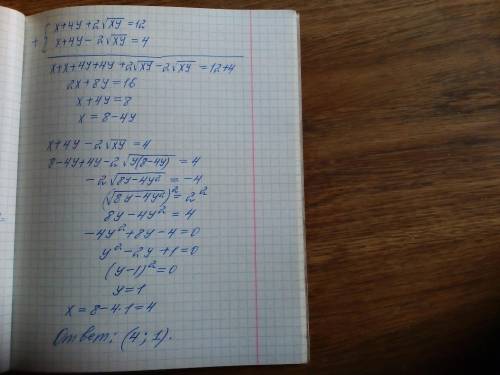 + { x+4y+2√xy=12
x+4y-2√xy=4
x+x+4y+4y+2√xy-2√xy=12+4
2x+8y=16
x+4y=8
x=8-4y
x+4y-2√xy=4
8-4y+4y-2√y(8-4y)=4
-2√8y-4y²=-4
(√8y-4y²)²=2²
8y-4y²=4
-4y²+8y-4=0
y²-2y+1=0
(y-1)²=0
y=1
x=8-4·1=4
Ответ: (4; 1).